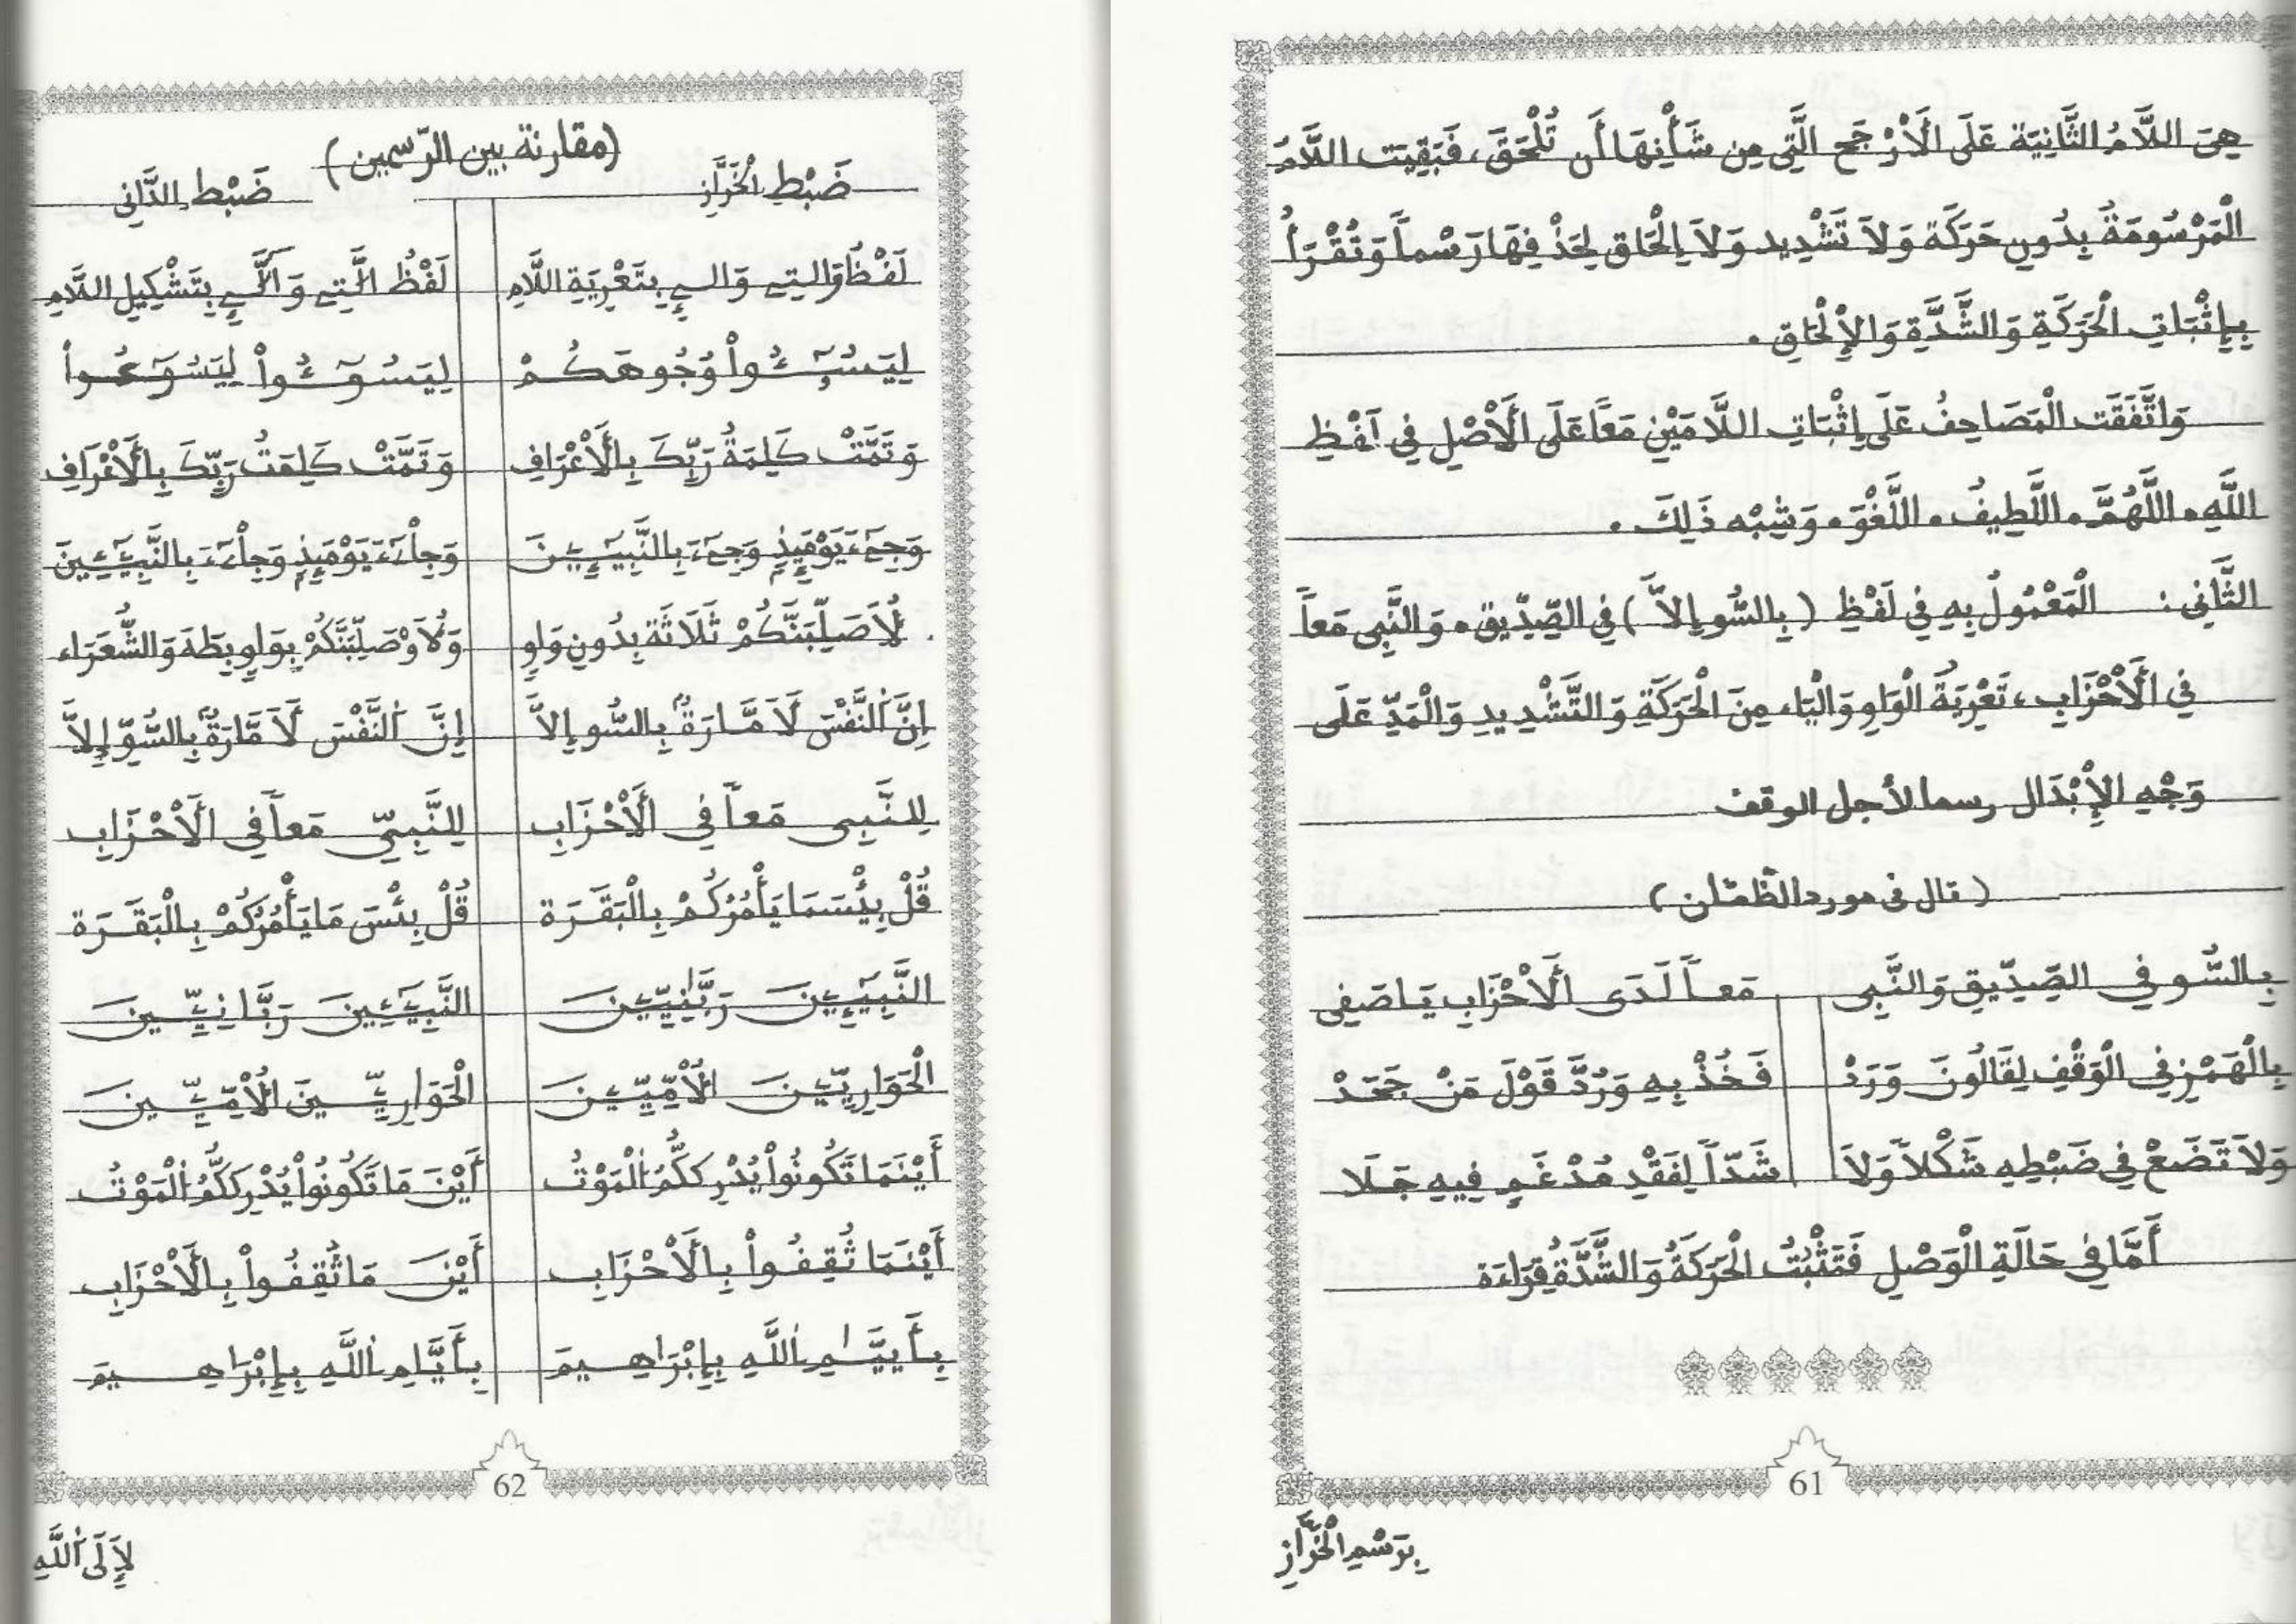 هِيَ اللَّامُ الثَّانِيَة عَلَى الَارْجَح الَّتِي مِن شَأْنِهَا أَن تُلْحَقَ، فَبَقِيَت اللَّامُ
الْمَرْسُومَةُ بِدُونِ حَرَكَة وَلاَ تَشْدِيد وَلاَ إِلْحَاق لِحَذْفِهَا رَسْماً وَتُقْرَأُ
بِإِثْبَاتِ الْحَرَكَةِ وَالشَّدَّةِ وَالإِلْحَاقِ .
وَاتَّفَقَت الْمَصَاحِفُ عَلَى إِثْبَاتِ اللَّامَيْنِ مَعًا عَلَى الَاصْلِ فِي لَفْظِ
اللَّهِ . اللَّهُمَّ . اللَّطِيفُ . اللَّغْوَ . وَشِبْه ذَلِكَ .
الثَّانِي : الْمَعْمُولُ بِهِ فِي لَفْظِ ( بِالسُّوِ إِلاَّ ) فِي الصِّدِّيقِ . وَالنَّبِي مَعاً
فِي الَاحْزَابِ ، تَعْرِيَةُ الْوَاوِ وَالْيَاءِ مِنَ الْحَرَكَةِ وَالتَّشْدِيدِ وَالْمَدِّ عَلَى
وَجْهِ الإِبْدَال رسما لأجل الوقف
( قال في مورد الظمآن )
بِالسُّو فِي الصِّدِّيقِ وَالنَّبِي مَعاً لَدَى الَاحْزَابِ يَا صَفِي
بِالْهَمْزِ فِي الْوَقْفِ لِقَالُونَ وَرَدْ فَخُذْ بِهِ وَرُدَّ قَوْلَ مَنْ جَحَدْ
وَلاَ تَضَعْ فِي ضَبْطِهِ شَكْلاً وَلاَ شَدّاً لِفَقْدِ مُدْغَمٍ فِيهِ جَلَا
أَمَّا فِي حَالَةِ الْوَصْلِ فَتَثْبُتُ الْحَرَكَةُ وَالشَّدَّةُ قِرَاءَة
61
بِرَسْمِ الْخَرَّازِ
(مقارنة بين الرّسمين)
ضَبْطِ الْخَرَّازِ ضَبْطِ الدَّانِي
لَفْظُ وَالتِے وَالےِ بِتَعْرِيَةِ اللَّامِ لَفْظُ الَّتِے وَالَّےِ بِتَشْكِيلِ اللَّامِ
لِيَسُـُٔواْ وُجُوهَكُمْ لِيَسُوٓـُٔواْ لِيَسُوٓءُواْ
وَتَمَّتْ كَلِمَةُ رَبِّكَ بِالَاعْرَافِ وَتَمَّتْ كَلِمَتُ رَبِّكَ بِالَاعْرَافِ
وَجِےٓءَ يَوْمَئِذٍ وَجِےٓءَ بِالنَّبِيـِٕينَ وَجِاْےٓءَ يَوْمَئِذٍ وَجِاْےٓءَ بِالنَّبِيـِٕينَ
لُأَصَلِّبَنَّكُمْ ثَلَاثَة بِدُونِ وَاوٍ وَلَأُوصَلِّبَنَّكُمْ بِوَاوٍ بِطَهَ وَالشُّعَرَاء
إِنَّ اَلنَّفْسَ لَأَمَّارَةُۢ بِالسُّوِ إِلاَّ إِنَّ اَلنَّفْسَ لَأَمَّارَةُۢ بِالسُّوِّ إِلاَّ
لِلنَّبِي مَعاً فِي الَاحْزَابِ لِلنَّبِيِّ مَعاً فِي الَاحْزَابِ
قُلْ بِيسَمَا يَأْمُرُكُمْ بِالْبَقَرَة قُلْ بِئْسَ مَا يَأْمُرُكُمْ بِالْبَقَرَة
النَّبِيـِٕينَ رَبَّٰنِيِّـنَ النَّبِيـِٕينَ رَبَّانِيِّينَ
الْحَوَارِيِّـنَ الُامِّيِّـنَ الْحَوَارِيِّينَ الُامِّيِّينَ
أَيْنَمَا تَكُونُواْ يُدْرِككُّمُ اُلْمَوْتُ أَيْنَ مَا تَكُونُواْ يُدْرِككُّمُ اُلْمَوْتُ
أَيْنَمَا ثُقِفُواْ بِالَاحْزَابِ أَيْنَ مَا ثُقِفُواْ بِالَاحْزَابِ
بِأَيَّيٰمِ اِللَّهِ بِإِبْرَٰهِيمَ بِأَيَّامِ اِللَّهِ بِإِبْرَٰهِيمَ
62
لَإِلَى اَللَّهِ